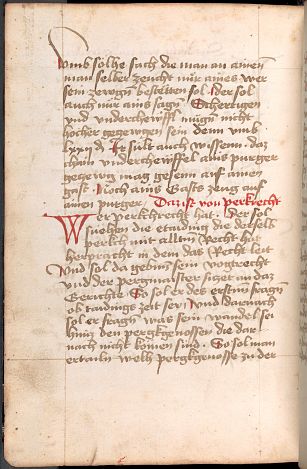 vmb solhe sach die man an ainen
man selber zeucht nür aines wer
sein zewgn bestetten sol. Der sol
auch nür ains sagn Schergen
vnd vnderchewffl mügn nicht
hocher gezewgn sein denn vmb
lxxij dn Ir sült auch wissenn daz
chain vnderchewffel ains purger
gezewg mag gesein auf ainen
gast Noch ains gasts zeug auf
ainen purger. Daz ist von perkrecht
Wer perkchrecht hat. Der sol
suechen die etaiding die derselb
perkch mit alltm Recht hat
herpracht in dem daz Recht leit
Vnd sol da gebm sein vogtrecht
vnd der pergmaister siczet an daz
Gerichte So sol er des ersten fragn
ob taidings zeit sey. Vnd darnach
sol er fragn was sein wandel sei
hincz den pergkgenossen die dar
nach nicht komen sind. So sol man
ertailn welh pergkgenosse zu der